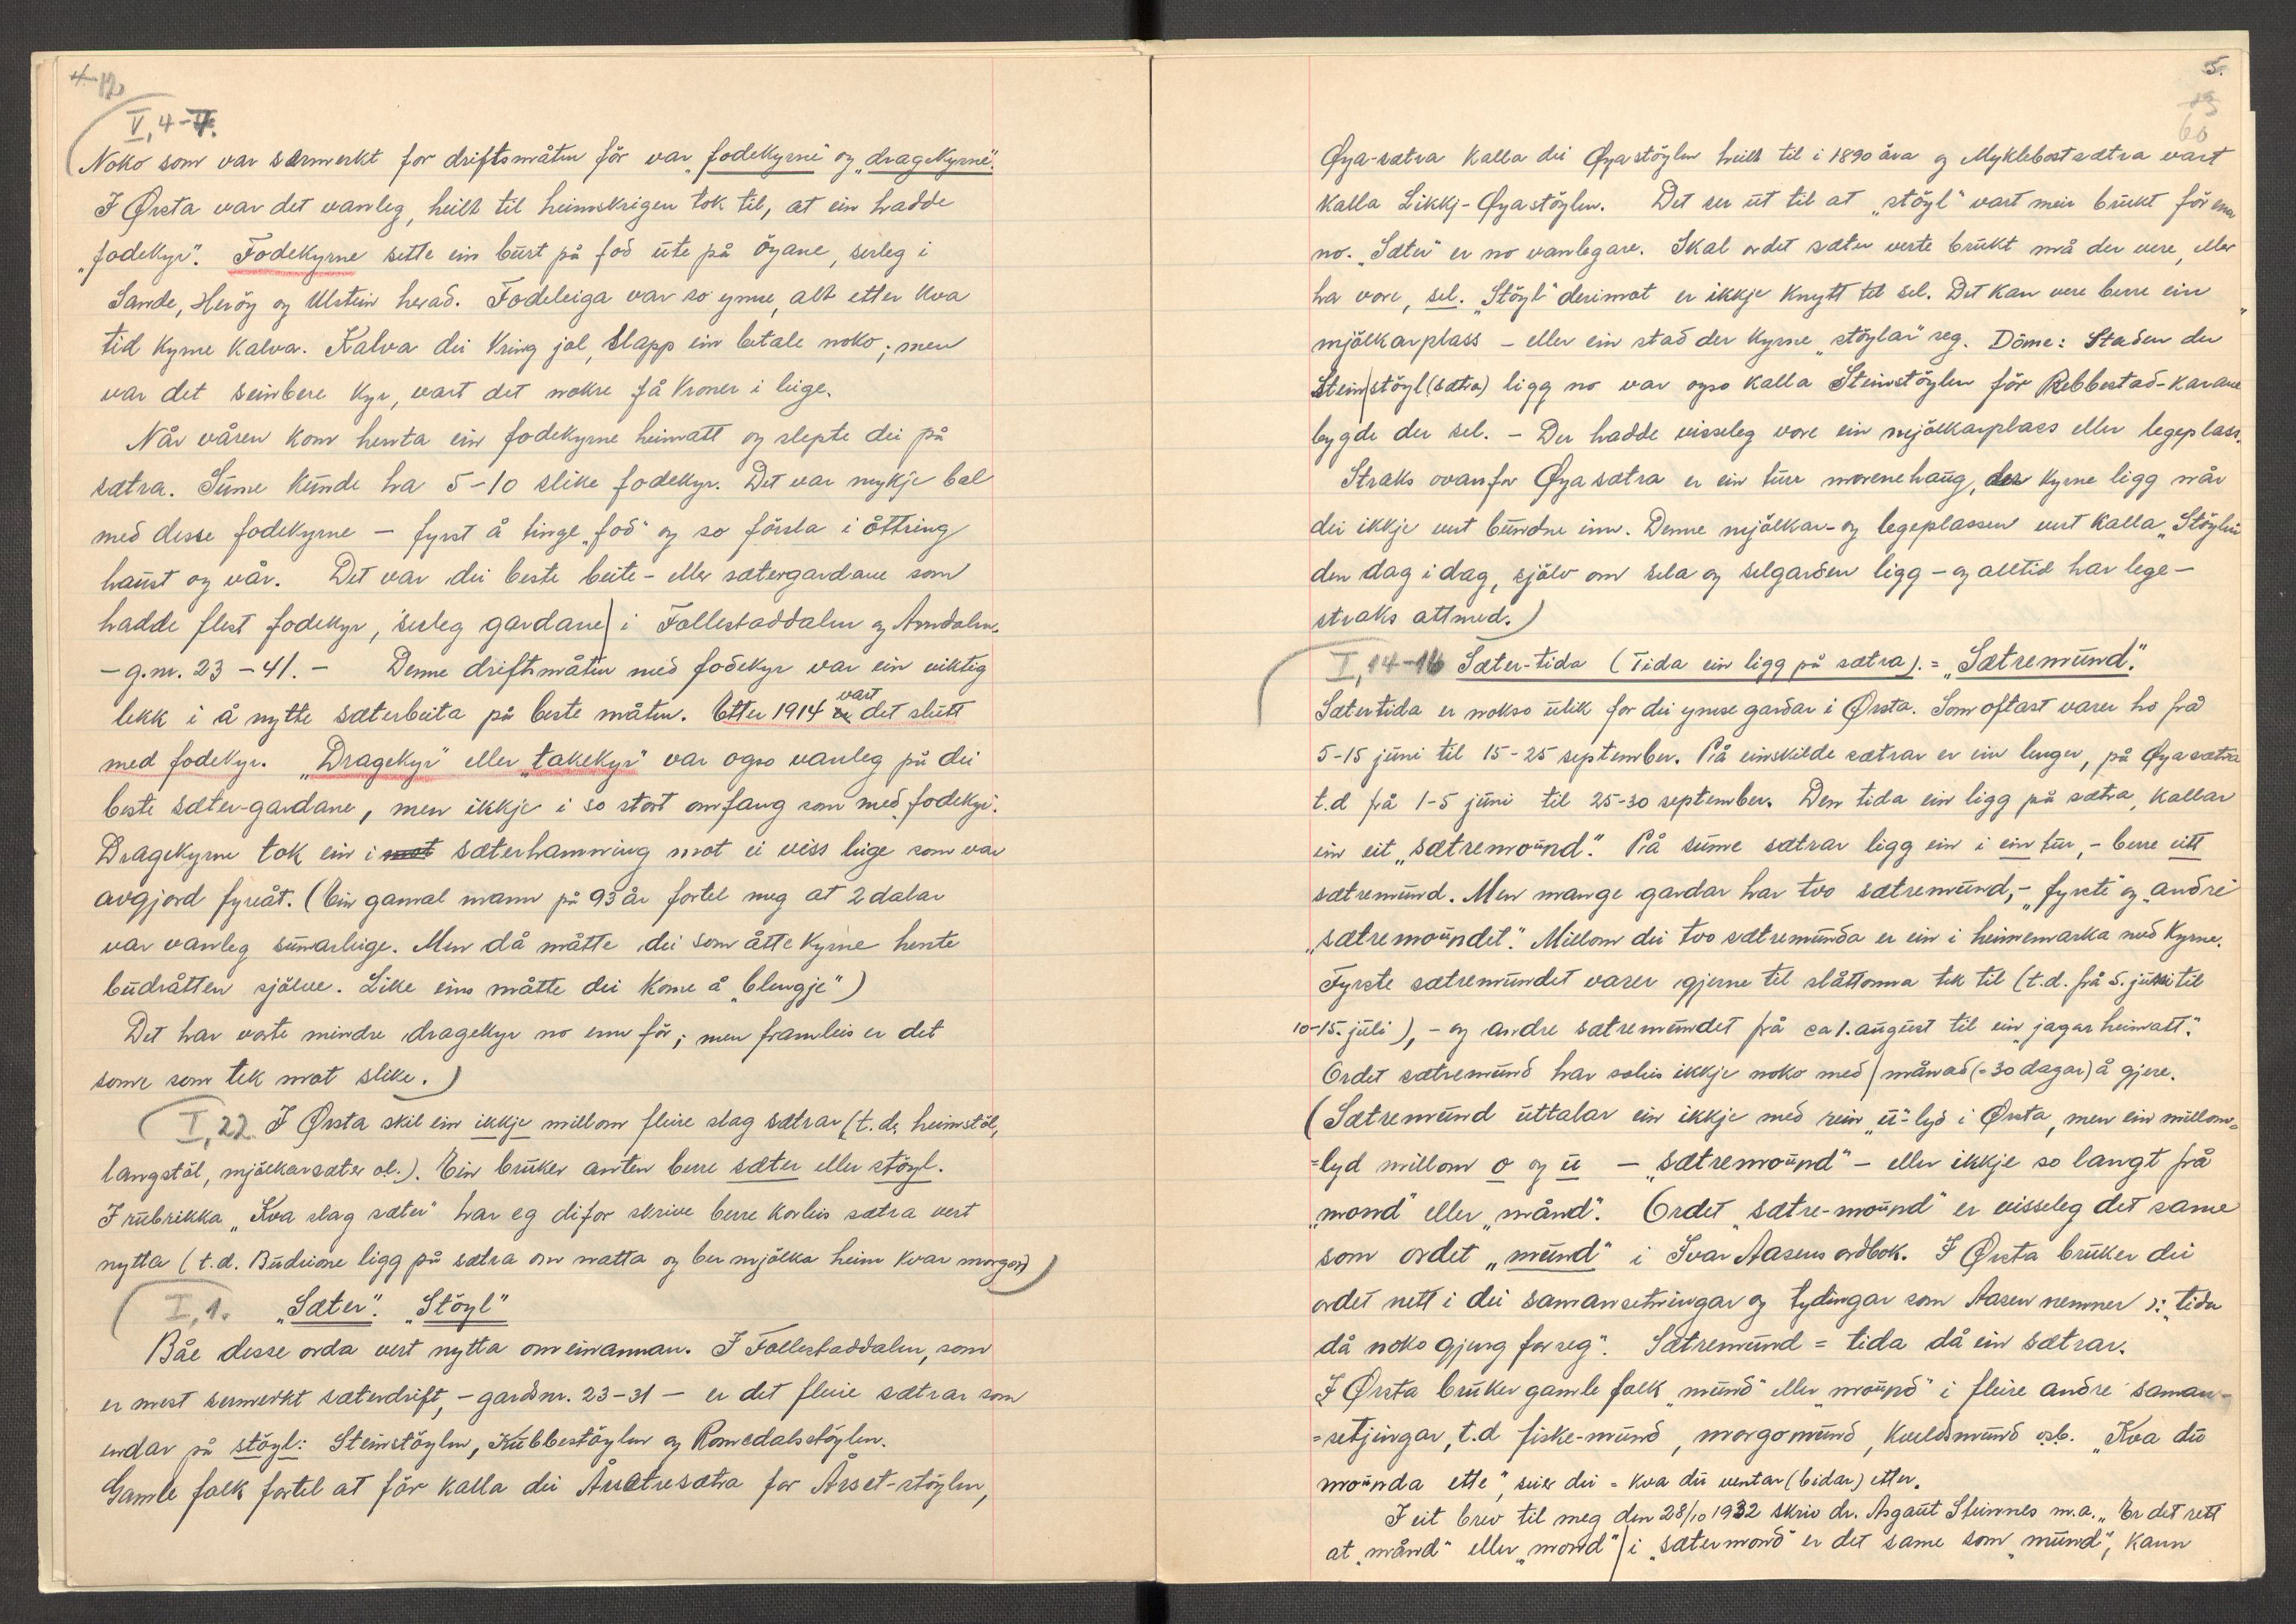 4. 12
V, 4-7.
Noko som var særmerkt for driftsmåten för var „fodekyrne" og „dragekyrne".
I Ørsta var det vanleg, heilt til heimskrigen tok til, at ein hadde
„fodekyr". Fodekyrne sette ein burt på fod ute på öyane, serleg i
Sande, Heröy og Ulstein herad. Fodeleiga var so ymse, alt etter kva
tid kyrne kalva. Kalva dei kring jol, slapp ein betale noko; men
var det seinbere kyr, vart det nokre få kroner i leige.
Når våren kom henta ein fodekyrne heimatt og slepte dei på
sætra. Sume kunde ha 5-10 slike fodekyr. Det var mykje bal
med desse fodekyrne — fyrst å tinge „fod" og so försla i åttring
haust og vår. Det var dei beste beite- eller sætergardane som
hadde flest fodekyr, serleg gardane i Follestaddalen og Åmdalen.
- g.nr. 23-41. - Denne driftsmåten med fodekyr var ein viktig
lekk i å nytte sæterbeita på beste måten. Etter 1914 vart det slutt
med fodekyr. „Dragekyr" eller „takekyr" var ogso vanleg på dei
beste sæter-gardane, men ikkje i so stort omfang som med „fodekyr".
Dragekyrne tok ein i mot sæterhamning mot ei viss leige som var
avgjord fyreåt. (Ein gamal mann på 93 år fortel meg at 2 dalar
var vanleg sumarleige. Men då måtte dei som åtte kyrne hente
budråtten sjölve. Like eins måtte dei kome å „blengje")
Det har vorte mindre dragekyr no enn för; men framleis er det
some som tek mot slike.)
I, 22 I Ørsta skil ein ikkje millom fleire slag sætrar (t.d. heimstöl,
langstöl, mjölkarsæter ol.). Ein bruker anten berre sæter eller stöyl.
I rubrikka „Kva slag sæter" har eg difor skrive berre korleis sætra vert
nytta (t.d. Budeione ligg på sætra om natta og ber mjölka heim kvar morgon)
I, 1. „Sæter". „Stöyl"
Båe desse orda vert nytta om einannan. I Follestaddalen, som
er mest sermerkt sæterdrift, - gardsnr. 23-31 - er det fleire sætrar som
endar på stöyl: Steinstöylen, Kubbestöylen og Romedalsstöylen.
Gamle folk fortel at för kalla dei Årsetresætra for Årset-stöylen,
5.
13
60
Øya-sætra kalla dei Øyastöylen heilt til i 1890 åra og Myklebostsætra vart
kalla Likkj-Øyastöylen. Det ser ut til at „stöyl" vart meir brukt för enn
no. „Sæter" er no vanlegare. Skal ordet sæter verte brukt må der vere, eller
ha vore, sel. „Stöyl" derimot er ikkje knytt til sel. Det kan vere berre ein
mjölkarplass - eller ein stad der kyrne „stöylar" seg. Döme: Staden der
Steinstöyl (sætra) ligg no var ogso kalla Steinstöylen för Rebbestad-karane
bygde der sel. - Der hadde visseleg vore ein mjölkarplass eller legeplass.
Straks ovanfor Øyasætra er ein turr morenehaug, der kyrne ligg når
dei ikkje vert bundne inn. Denne mjölkar- og legeplassen vert kalla „Stöylen"
den dag i dag, sjölv om sela og selgarden ligg - og alltid har lege -
straks attmed.)
I, 14-16 Sæter-tida (Tida ein ligg på sætra). = „Sætremund".
Sætertida er nokso ulik for dei ymse gardar i Ørsta. Som oftast varer ho frå
5-15 juni til 15-25 september. På einskilde sætrar er ein lenger, på Øyasætra
t.d frå 1-5 juni til 25-30 september. Den tida ein ligg på sætra, kallar
ein eit „sætremound". På sume sætrar ligg ein i ein tur, - berre eitt
sætremund. Men mange gardar har tvo sætremund, - „fyrste" og „andre"
„sætremoundet". Millom dei tvo sætremunda er ein i heimemarka med kyrne.
Fyrste sætremundet varer gjerne til slåttonna tek til (t.d. frå 5. juni til
10-15. juli), - og andre sætremundet frå ca 1. august til ein „jagar heimatt".
Ordet sætremund har soleis ikkje noko med månad (= 30 dagar) å gjere.
(Sætremund uttalar ein ikkje med rein „u"-lyd i Ørsta, men ein millom=
=lyd millom o og u — „sætremound" - eller ikkje so langt frå
„mond" eller „månd". Ordet „sætre-mound" er visseleg det same
som ordet „mund" i Ivar Aasens ordbok. I Ørsta bruker dei
ordet nett i dei samansetningar og tydingar som Aasen nemner ɔ: „tida
då noko gjeng for seg". Sætremund = tida då ein sætrar.
I Ørsta bruker gamle folk „mund" eller „mound" i fleire andre saman-
=setjingar, t.d fiske-mund, morgomund, kveldsmund osb. „Kva du
mounda ette", seier dei = kva du ventar (bidar) etter.
I eit brev til meg den 28/10 1932 skriv dr. Asgaut Steinnes m.a. „Er det rett
at „månd" eller „mond" i „sætermond" er det same som „mund", kann